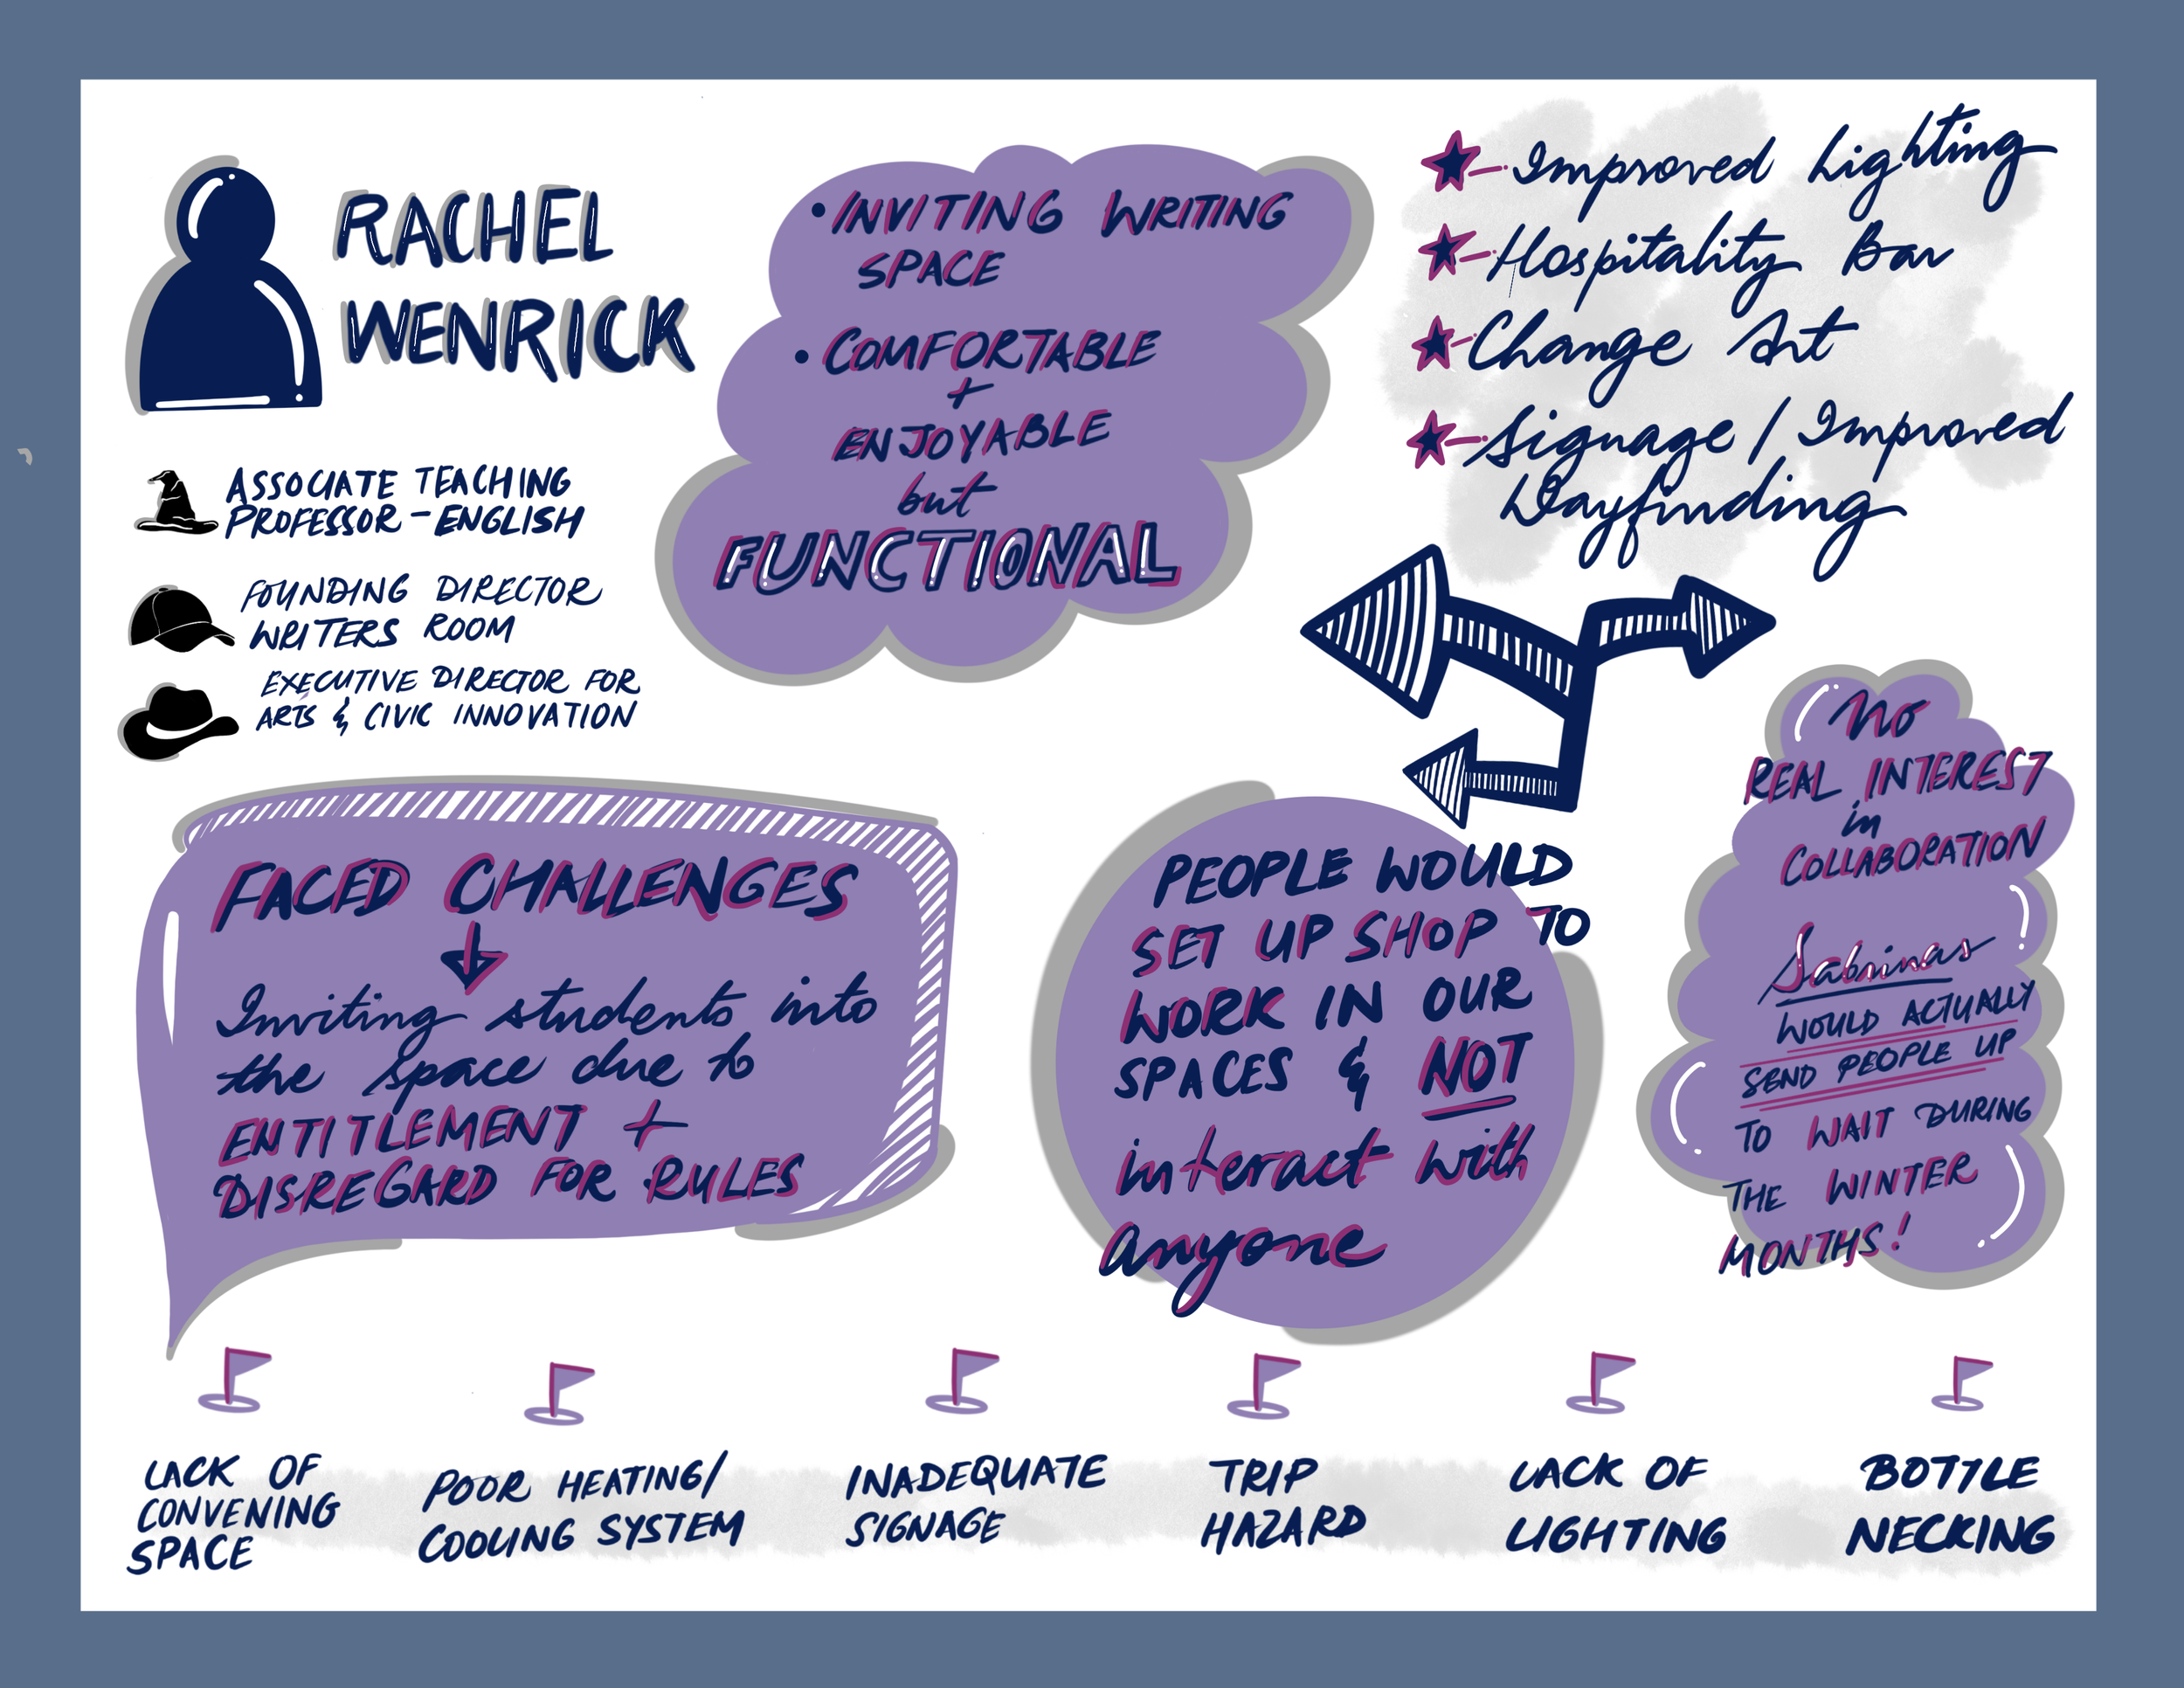 RACHEL
WENRICK
ASSOCIATE TEACHING
PROFESSOR - ENGLISH
FOUNDING DIRECTOR
WRITERS ROOM
EXECUTIVE DIRECTOR FOR
ARTS & CIVIC INNOVATION
• INVITING WRITING
SPACE
• COMFORTABLE
+
ENJOYABLE
but
FUNCTIONAL
Improved Lighting
Hospitality Bar
Change Art
Signage / Improved
Wayfinding
FACED CHALLENGES
Inviting students into
the space due to
ENTITLEMENT +
DISREGARD FOR RULES
PEOPLE WOULD
SET UP SHOP TO
WORK IN OUR
SPACES & NOT
interact with
anyone
No
REAL INTEREST
in
COLLABORATION
Sabrinas
WOULD ACTUALLY
SEND PEOPLE UP
TO WAIT DURING
THE WINTER
MONTHS!
LACK OF
CONVENING
SPACE
POOR HEATING/
COOLING SYSTEM
INADEQUATE
SIGNAGE
TRIP
HAZARD
LACK OF
LIGHTING
BOTTLE
NECKING